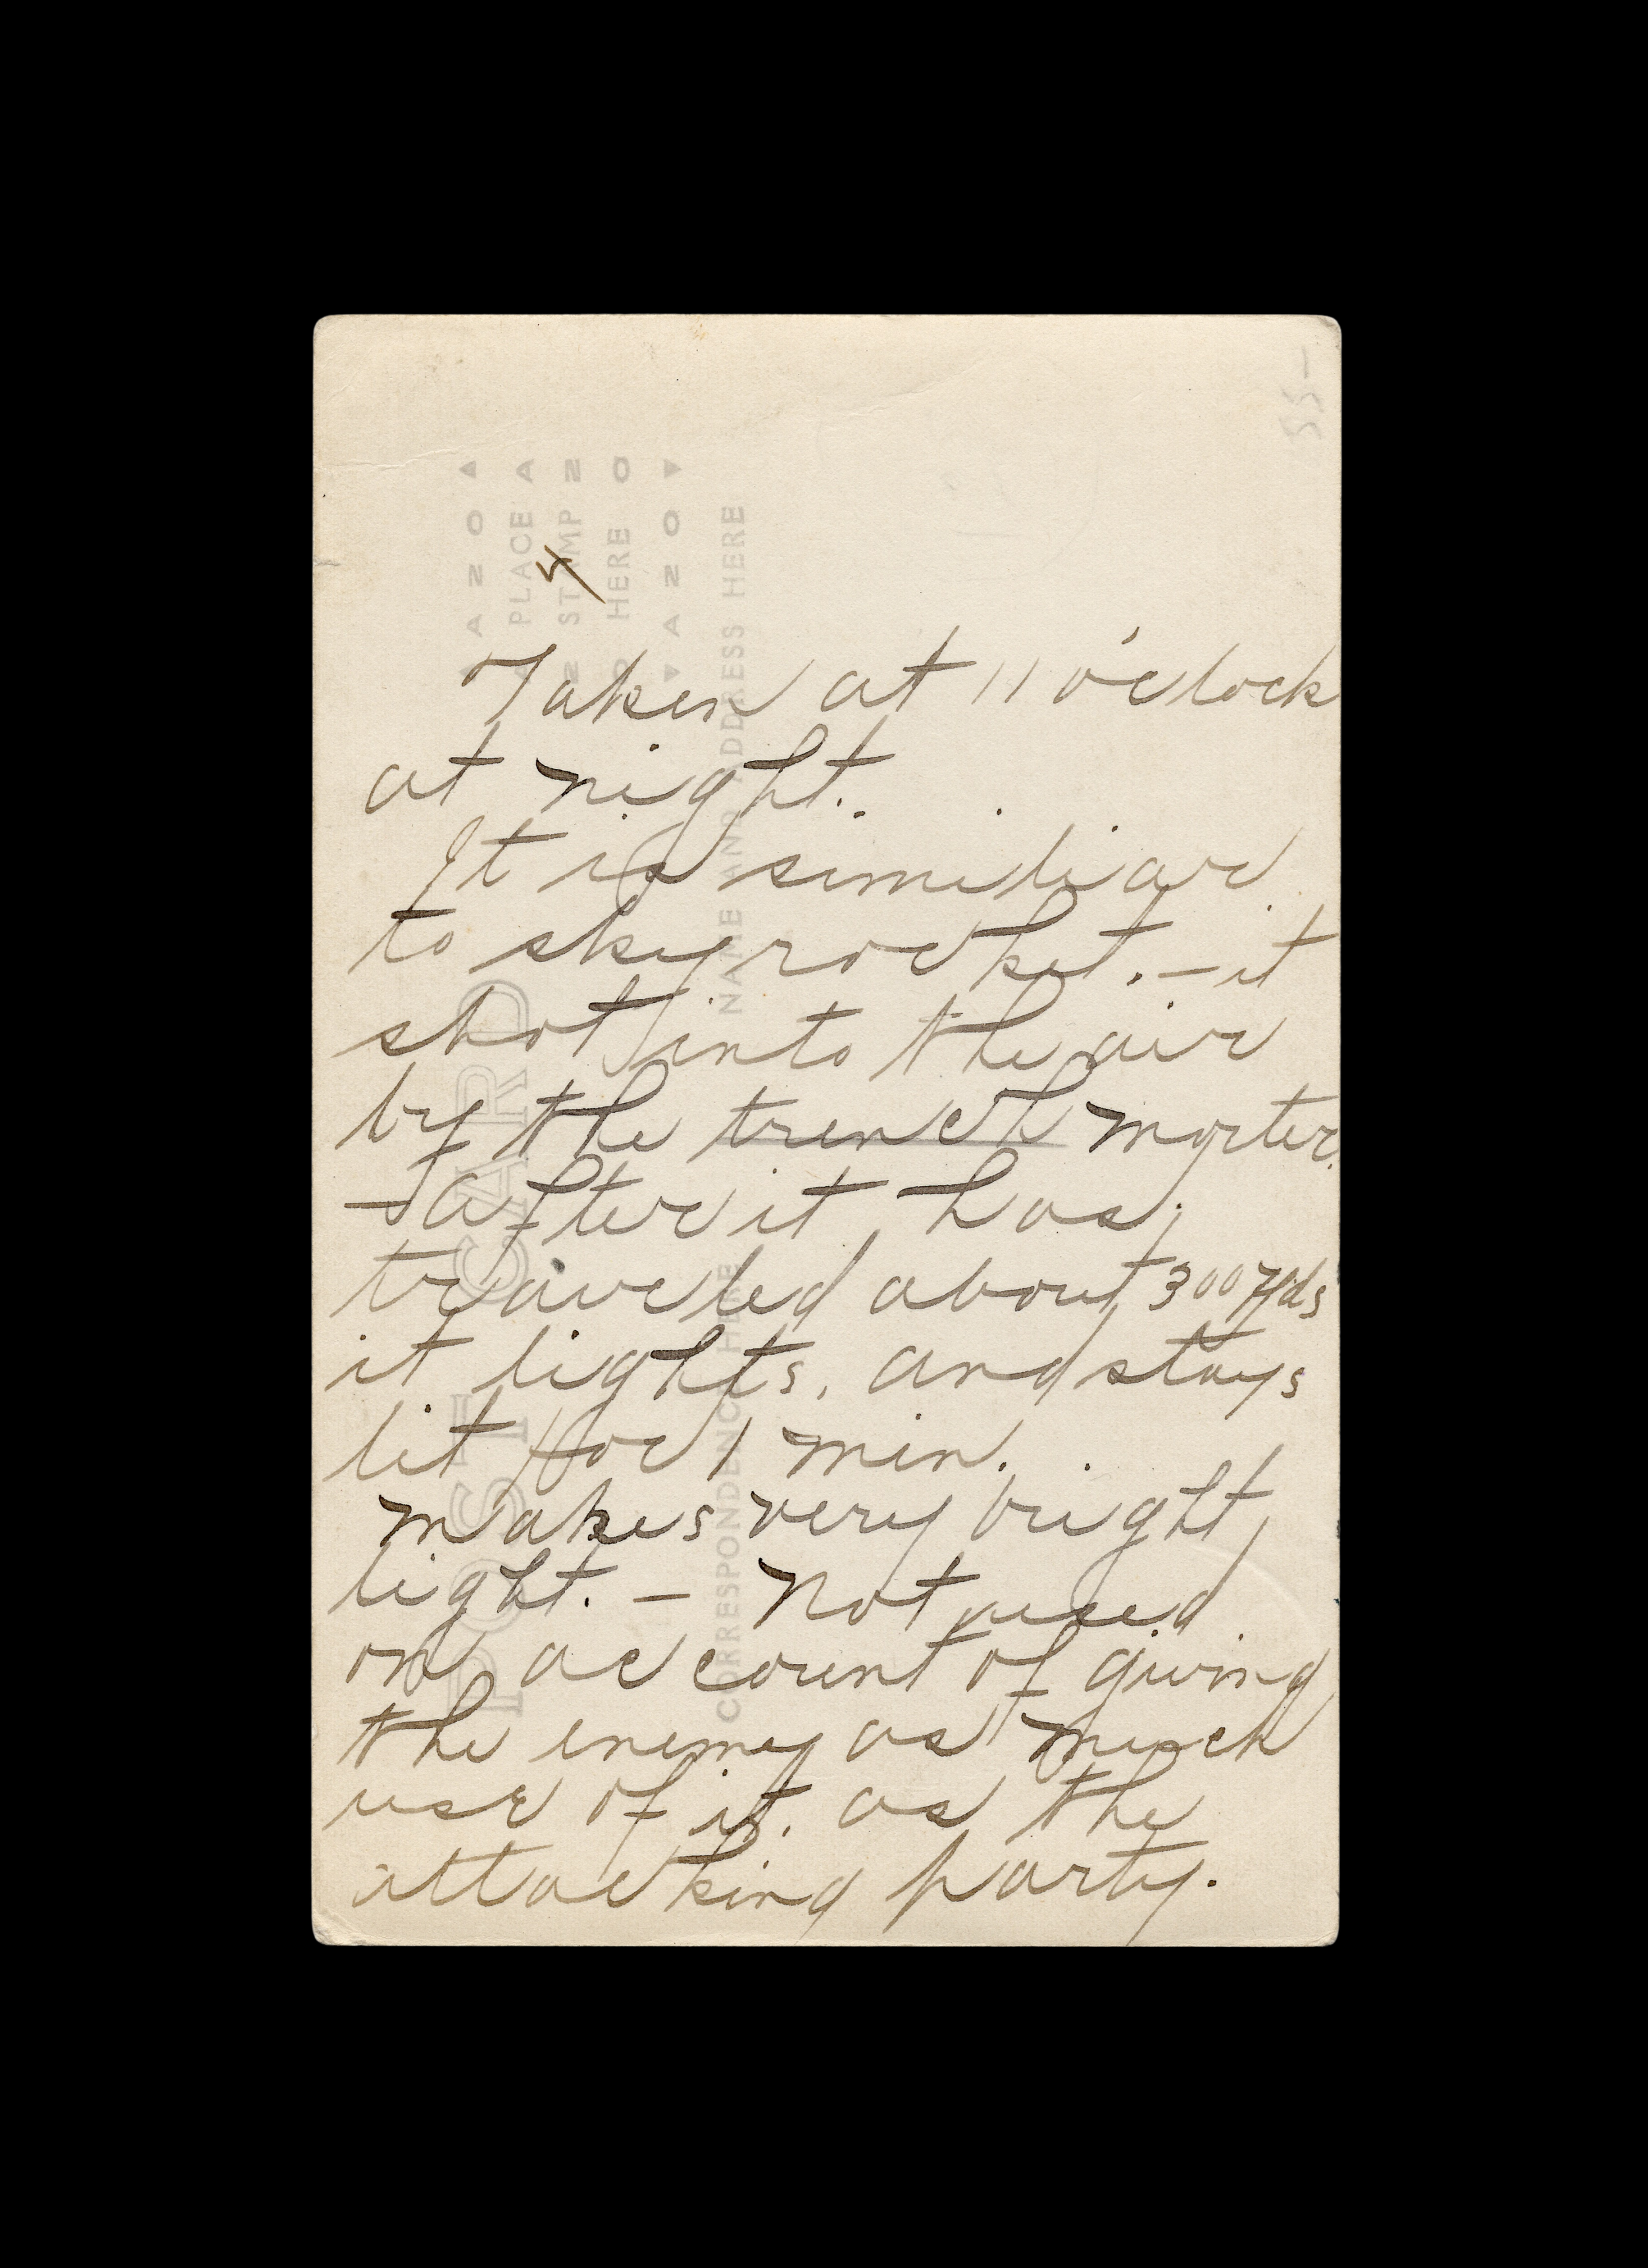 Taken at 11 o'clock
at night.
It is similiar
to sky rocket. – it
shot into the air
by the trench morter.
– after it has
traveled about 300 yds
it lights, and stays
lit for 1 min.
makes very bright
light. – Not used
on account of giving
the enemy as much
use of it, as the
attacking party.
POST CARD
CORRESPONDENCE HERE
NAME AND ADDRESS HERE
AZO
PLACE
STAMP
HERE
AZO